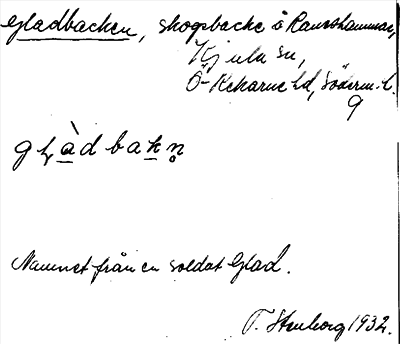 Gladbacken, skogsbacke å Ramshammar,
Kjula sn,
Ö-Rekarne hd, Söderm. l.
9
glàdbakn̥
Namnet från en soldat Glad.
T. Stenborg 1932.